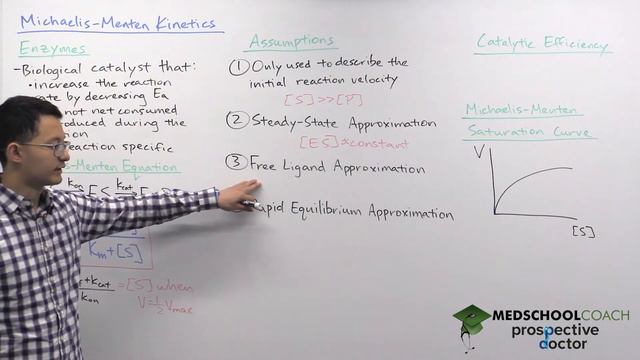 Michaelis-Menten Kinetics
Enzymes
-Biological catalyst that:
• increase the reaction
rate by decreasing Ea
not net consumed
produced during the
reaction specific
-Menten Equation
kon
kcat
Km+[S]
+kcat
kon
=[S] when
V=½Vmax
Assumptions
① Only used to describe the
initial reaction velocity
[S]>>[P]
② Steady-State Approximation
[ES]≈constant
③ Free Ligand Approximation
Rapid Equilibrium Approximation
Catalytic Efficiency
Michaelis-Menten
Saturation Curve
V
[S]
MEDSCHOOLCOACH
prospective
doctor